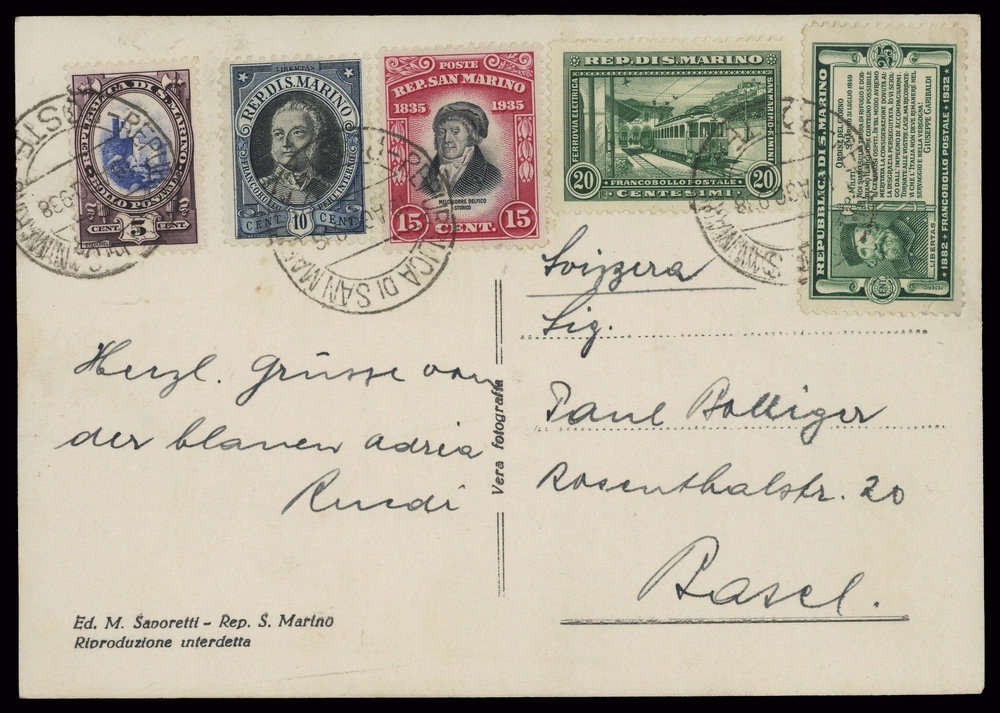 REPUBBLICA DI S. MARINO
BOLLO POSTALE
CENT 5 CENT
LIBERTAS
REP. DI S. MARINO
CENT 10 CENT
POSTE
REP. SAN MARINO
1835 1935
MELCHIORRE DELFICO
STORICO
15 CENT. 15
REP. DI S. MARINO
FERROVIA ELETTRICA
SAN MARINO-RIMINI
20 FRANCOBOLLO POSTALE 20
CENTESIMI
25
REPUBBLICA DI S. MARINO
1882 * FRANCOBOLLO POSTALE * 1932
ORDINE DEL GIORNO
GIUSEPPE GARIBALDI
LIBERTAS
REPUBBLICA DI SAN MARINO
Svizzera
Sig.
Herzl. Grüsse von
der blauen Adria
Ruedi
Vera fotografia
Paul Bolliger
Rosenthalstr. 20
Basel.
Ed. M. Savoretti - Rep. S. Marino
Riproduzione interdetta